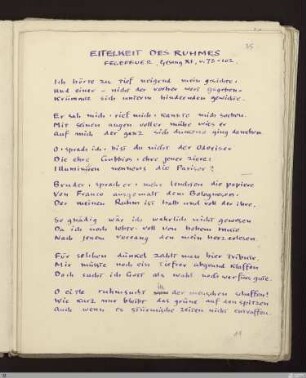 25
EITELKEIT DES RUHMES
FEGEFEUER, Gesang XI, v. 73-102
Ich hörte zu tief neigend mein gesicht.
Und einer - nicht der vorher rede gegeben -
Krümmte sich unterm hindernden gewicht.
Er sah mich · rief mich · kannte mich sodann
Mit seinen augen voller mühe wies er
Auf mich der ganz sich duckend ging daneben.
O · sprach ich · bist du nicht der Oderiser
Die ehre Gubbios · ihre jener zierer
Illuminieren nennens die Pariser?
Bruder · sprach er · mehr leuchten die papiere
Von Franco ausgemalt dem Bolognesen:
Der meinen Ruhm ist halb und voll der ihre.
So gnädig wär ich wahrlich nicht gewesen
Da ich noch lebte · voll von hohem mute
Nach jenem vorrang den mein herz erlesen.
Für solchen dünkel zahlt man hier tribute.
Mir müsste noch ein tiefrer abgrund klaffen
Doch sucht ich Gott als wahl noch verfügen gute.
O eitle ruhmsucht in der menschen schaffen!
Wie kurz nur bleibt das grüne auf den spitzen
Auch wenn es stürmische zeiten nicht entraffen.